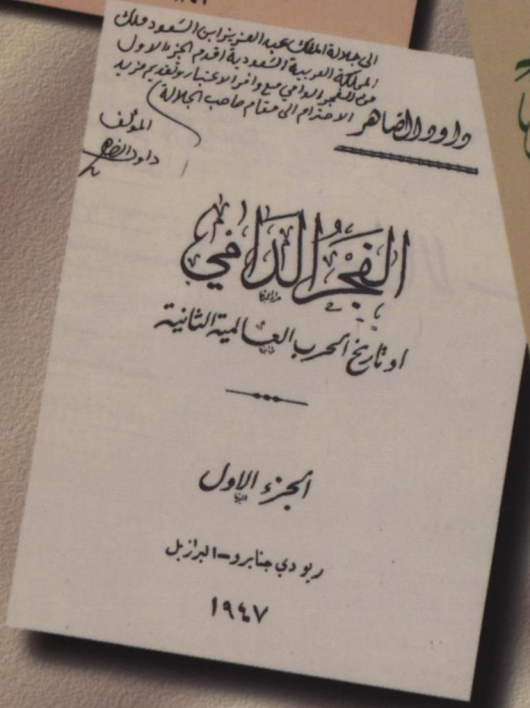 الى جلالة الملك عبد العزيز ابن السعود ملك
المملكة العربية السعودية اقدم الجزء الاول
من الفجر الدامي مع وافر الاعتبار وتقديم مزيد
الاحترام الى مقام صاحب الجلالة
داود الضاهر
المؤلف
داود الضاهر
الفجر الدامي
او تاريخ الحرب العالمية الثانية
الجزء الاول
ريو دي جنايرو - البرازيل
١٩٤٧